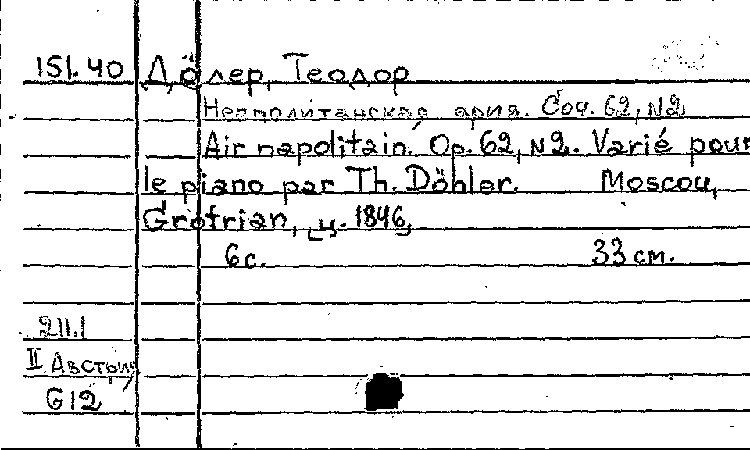 151.40 Дёлер, Теодор
Неаполитанская ария. Соч. 62, N2
Air napolitain. Op. 62, N2. Varié pour
le piano par Th. Döhler. Moscou,
Grotrian, ц. 1846,
6 с. 33 см.
211.1
II Австрия
G12